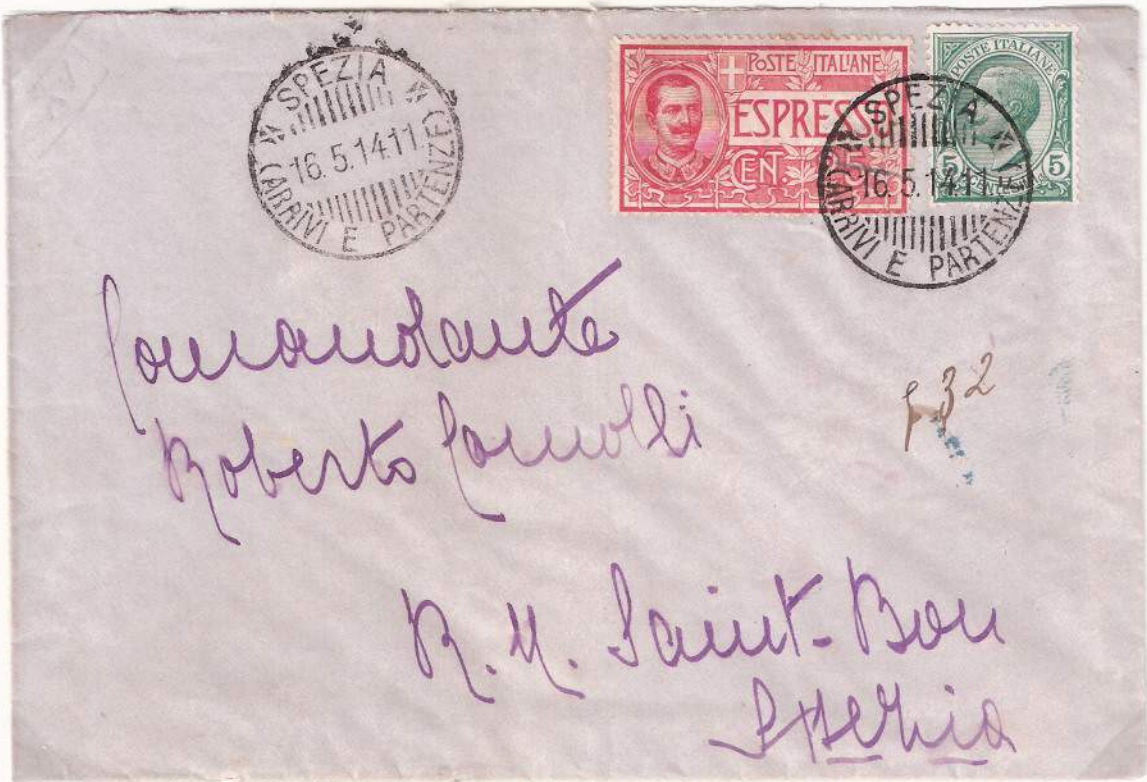 SPEZIA
16.5.14.11
(ARRIVI E PARTENZE)
POSTE ITALIANE
ESPRESSO
CENT. 25
POSTE ITALIANE
5 5
SPEZIA
16.5.14.11
(ARRIVI E PARTENZE)
Comandante
Roberto Comolli
32
R. N. Saint-Bon
Spezia